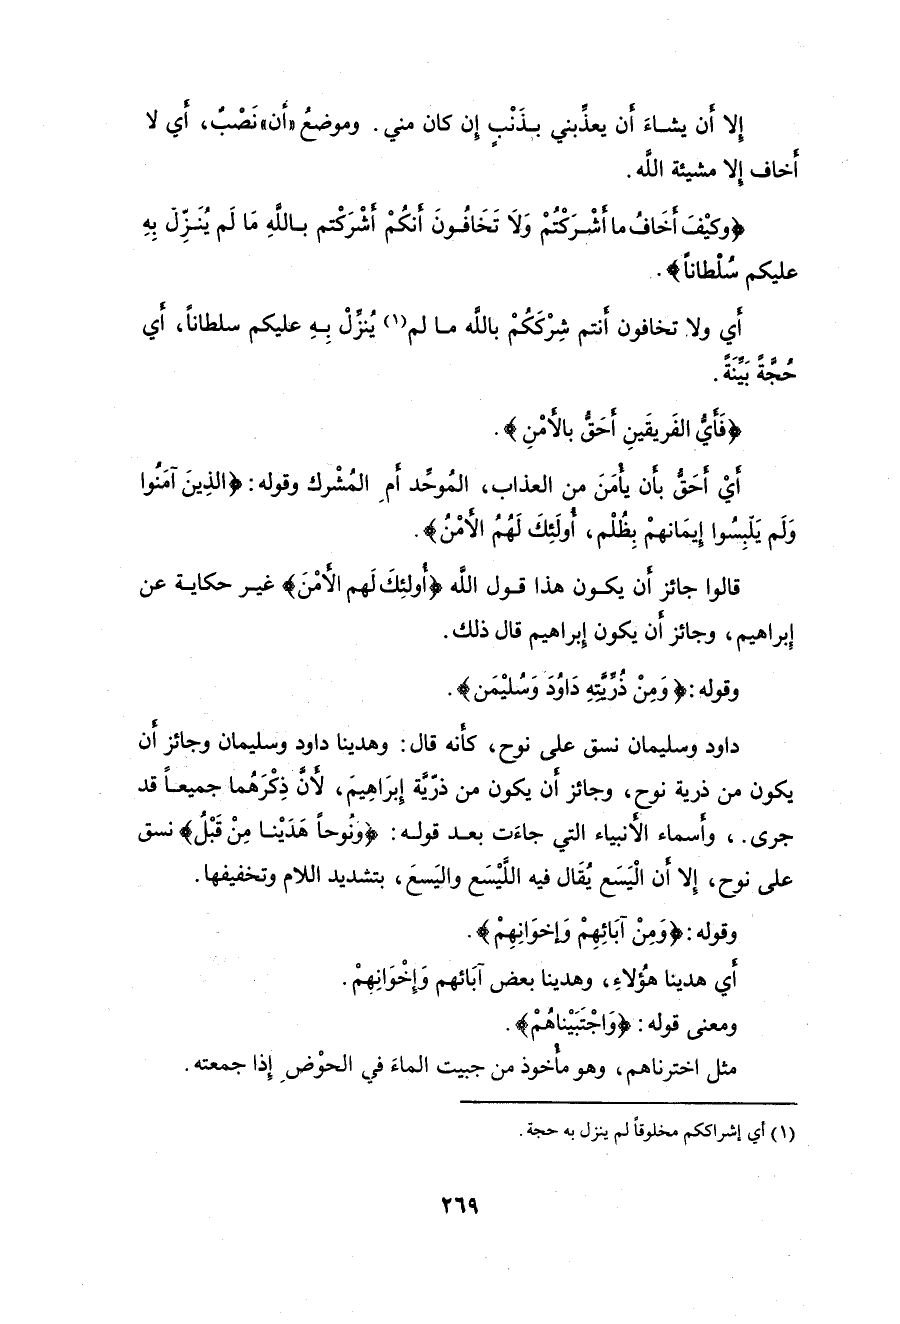 إلا أَن يشاءَ أَن يعذِّبني بذَنْبٍ إن كان مني. وموضعُ «أَن» نَصْبٌ، أَي لا
أَخاف إلا مشيئة اللَّه.
﴿وكيْفَ أَخَافُ ما أَشْرَكْتُمْ وَلَا تَخَافُونَ أَنكُمْ أَشْرَكْتم باللَّهِ مَا لَم يُنَزِّلْ بِهِ
عليكم سُلْطاناً﴾.
أَي ولا تخافون أَنتم شِرْكَكُمْ باللَّه ما لم(١) يُنزِّلْ بِهِ عليكم سلطاناً، أَي
حُجَّةً بَيِّنَةً.
﴿فَأَيُّ الفَريقَينِ أَحَقُّ بالأَمْنِ﴾.
أَيْ أَحَقُّ بأَن يأْمَنَ من العذاب، المُوحِّد أَمِ المُشْرك وقوله: ﴿الذِينَ آمَنُوا
وَلَم يَلْبِسُوا إيمَانهمْ بِظُلْم، أُولَئِكَ لَهُمُ الأَمْنُ﴾.
قالوا جائز أَن يكون هذا قول اللَّه ﴿أُولئِكَ لَهم الأَمْنَ﴾ غير حكاية عن
إبراهيم، وجائز أَن يكون إبراهيم قال ذلك.
وقوله: ﴿وَمِنْ ذُرِّيَّتِهِ دَاوُدَ وَسُليْمَن﴾.
داود وسليمان نسق على نوح، كأَنه قال: وهدينا داود وسليمان وجائز أَن
يكون من ذرية نوح، وجائز أَن يكون من ذرّيَّة إبرَاهِيمَ، لأَنَّ ذِكْرَهُما جميعاً قد
جرى.، وأَسماء الأَنبياء التي جاءَت بعد قوله: ﴿وَنُوحاً هَدَيْنا مِنْ قَبْلُ﴾ نسق
على نوح، إلا أَن الْيَسَع يُقَال فيه اللَّيْسَع واليَسعَ، بتشديد اللام وتخفيفها.
وقوله: ﴿وَمِنْ آبَائِهِمْ وَإخوَانِهِمْ﴾.
أَي هدينا هؤُلاءِ، وهدينا بعض آبَائهم وَإِخْوَانِهِمْ.
ومعنى قوله: ﴿وَاجْتَبَيْناهُمْ﴾.
مثل اخترناهم، وهو مأْخوذ من جبيت الماءَ في الحوْضِ إذا جمعته.
(١) أي إشراككم مخلوقاً لم ينزل به حجة.
٢٦٩